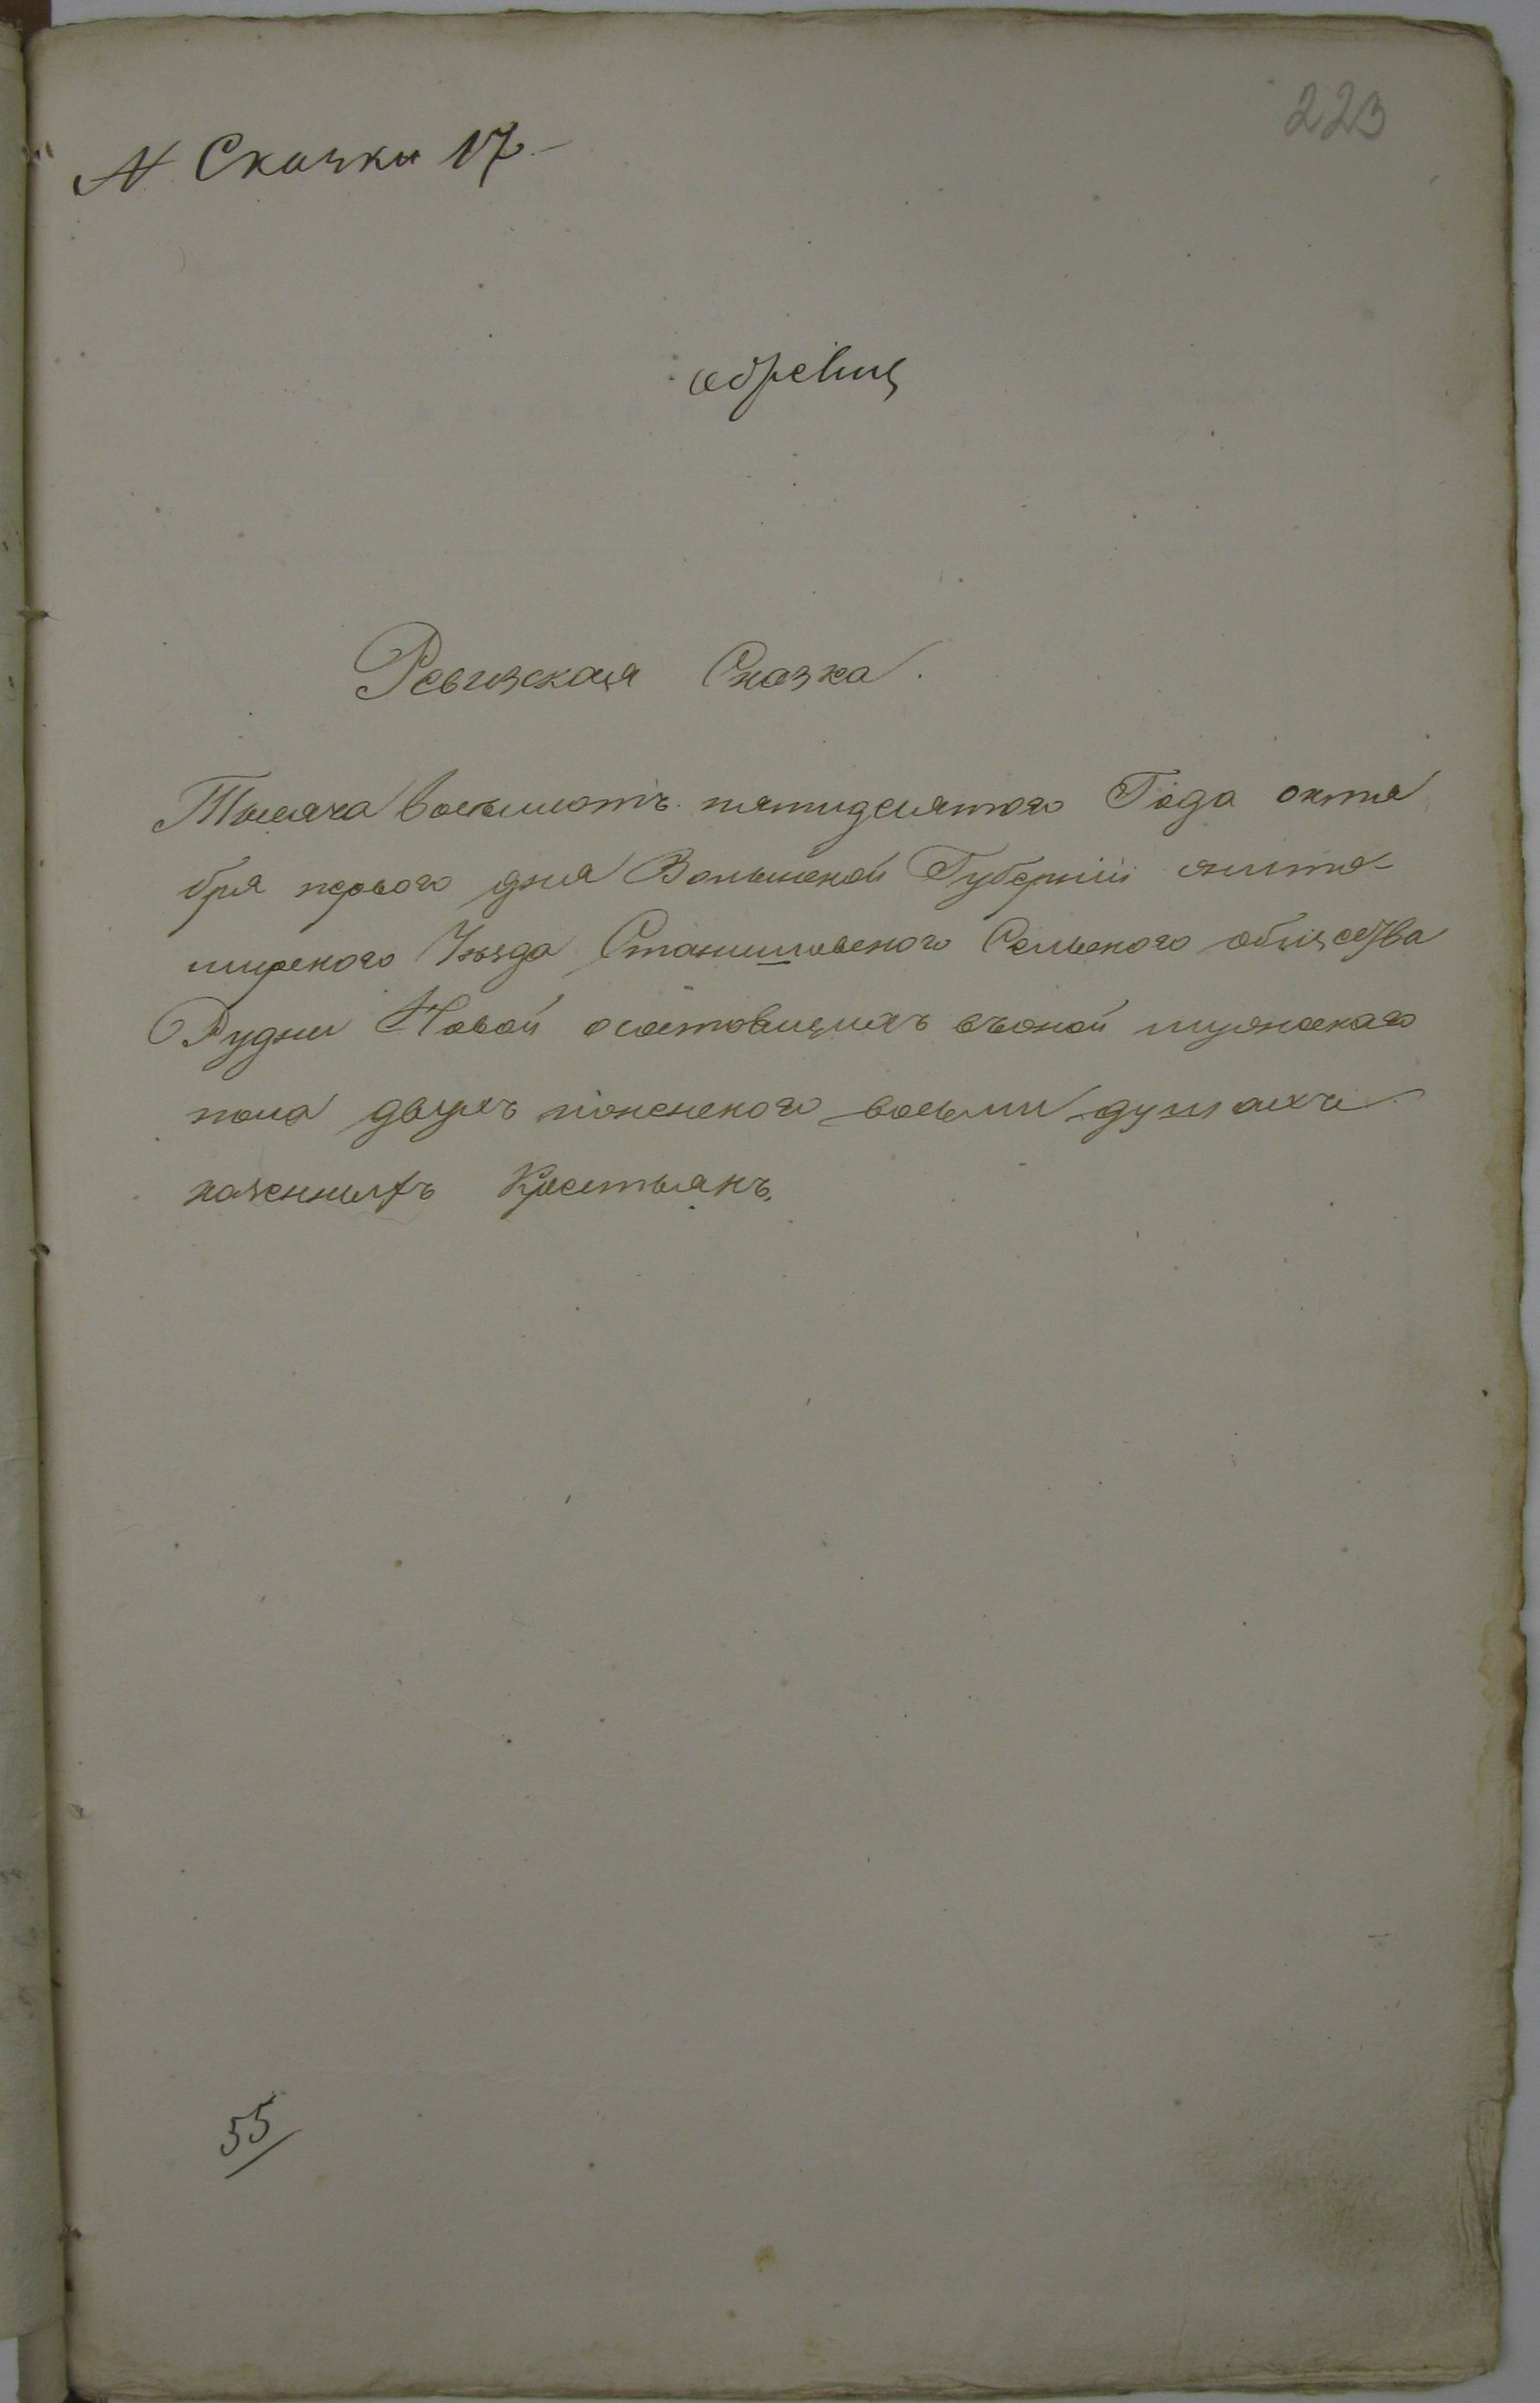 223
N Скаски 17
Ревизская Сказка.
Тысяча восемьсотъ пятидесятого Года октя
бря первого дня Волынской Губерніи жито-
мирского Уѣзда Станишовского Сельского общества
Рудни Новой о состоящихъ въоной мужеского
пола двухъ женского восьми душахъ
казенныхъ Крестьянъ.
55